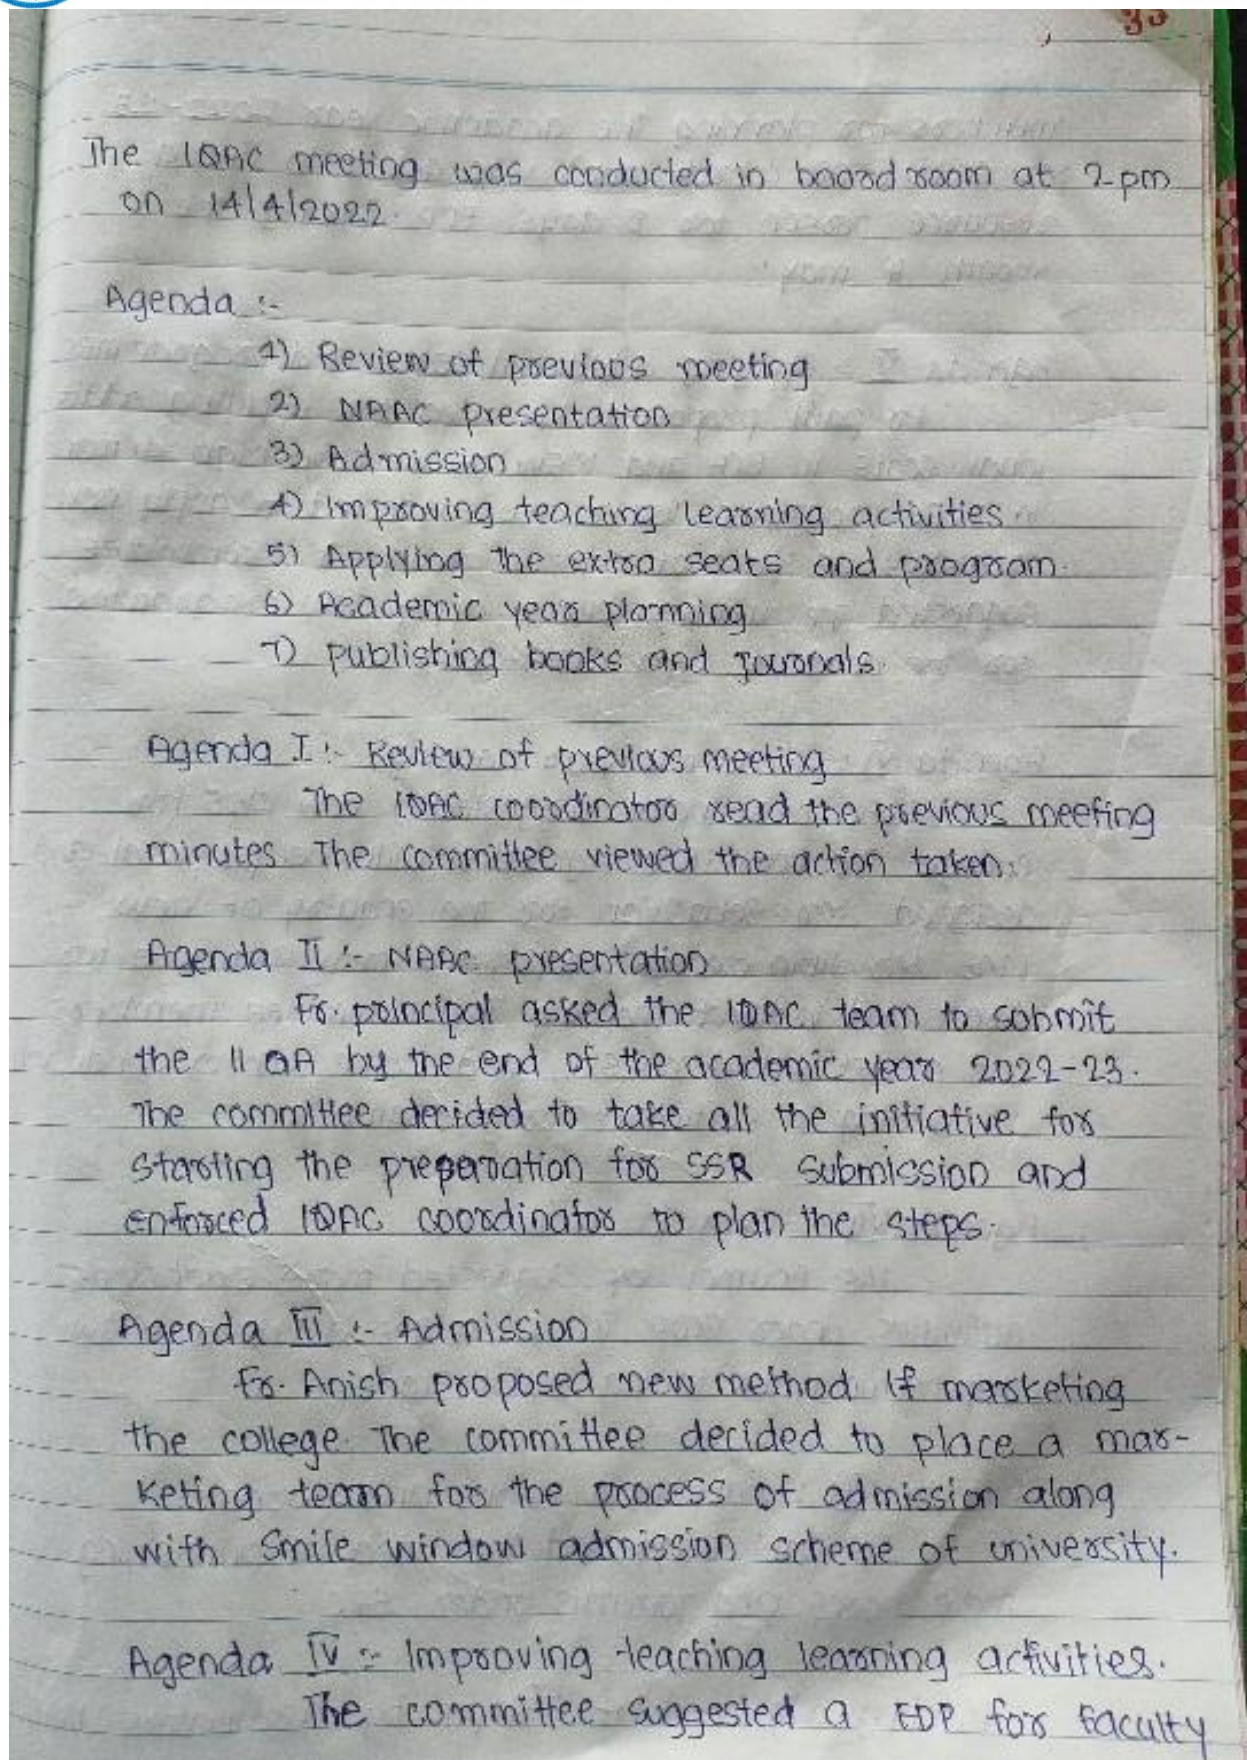 33
The IQAC meeting was conducted in board room at 2pm
on 14/4/2022.
Agenda :-
1) Review of previous meeting
2) NAAC presentation
3) Admission
4) Improving teaching learning activities.
5) Applying the extra seats and program.
6) Academic year planning
7) publishing books and Journals.
Agenda I :- Review of previous meeting
The IQAC coordinator read the previous meeting
minutes The committee viewed the action taken.
Agenda II :- NAAC presentation
Fr. principal asked the IQAC team to submit
the II QA by the end of the academic year 2022-23.
The committee decided to take all the initiative for
starting the preparation for SSR submission and
enforced IQAC coordinator to plan the steps.
Agenda III :- Admission
Fr. Anish proposed new method If marketing
the college. The committee decided to place a mar-
keting team for the process of admission along
with Smile window admission scheme of university.
Agenda IV :- Improving teaching learning activities.
The committee suggested a FDP for faculty